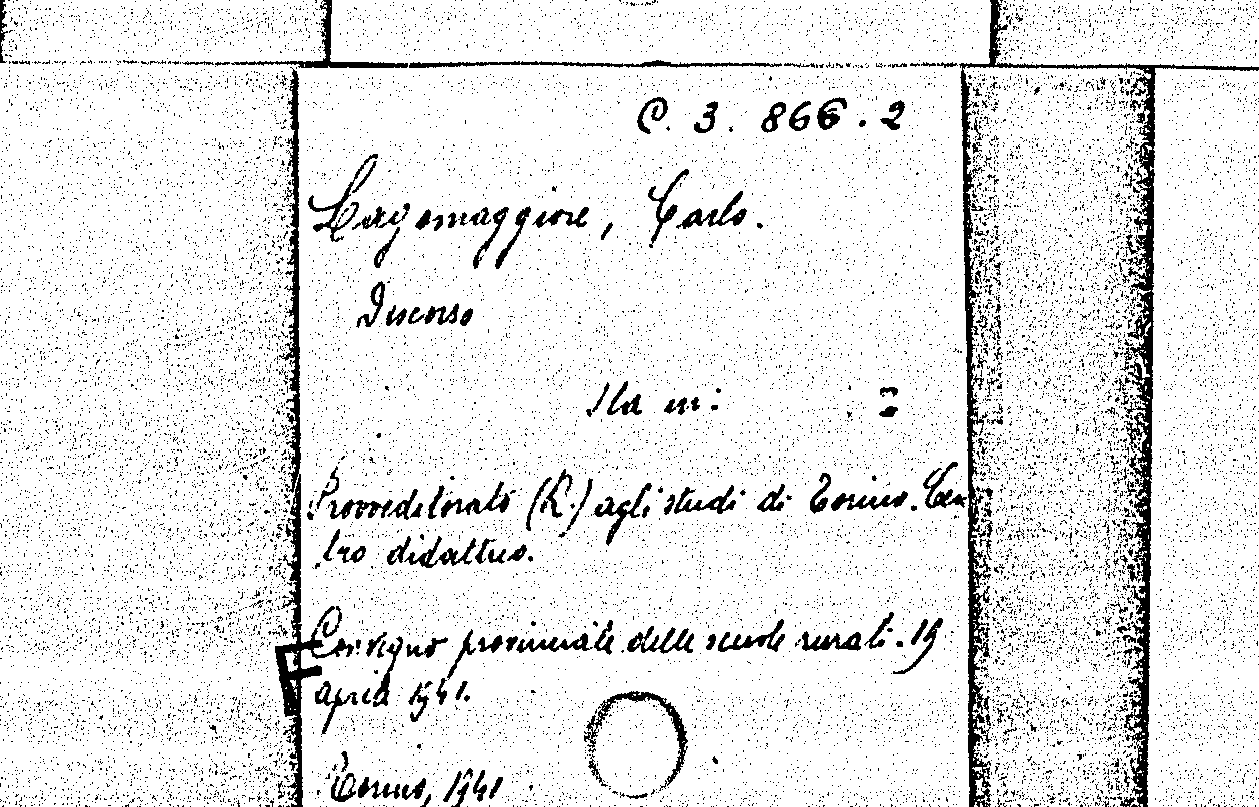 C. 3. 866.2
Lagomaggiore, Carlo.
Discorso
Sta in:
Provveditorato (R.) agli studi di Torino. Cen
tro didattico.
Convegno provinciale delle scuole rurali. 19
aprile 1941.
Torino, 1941